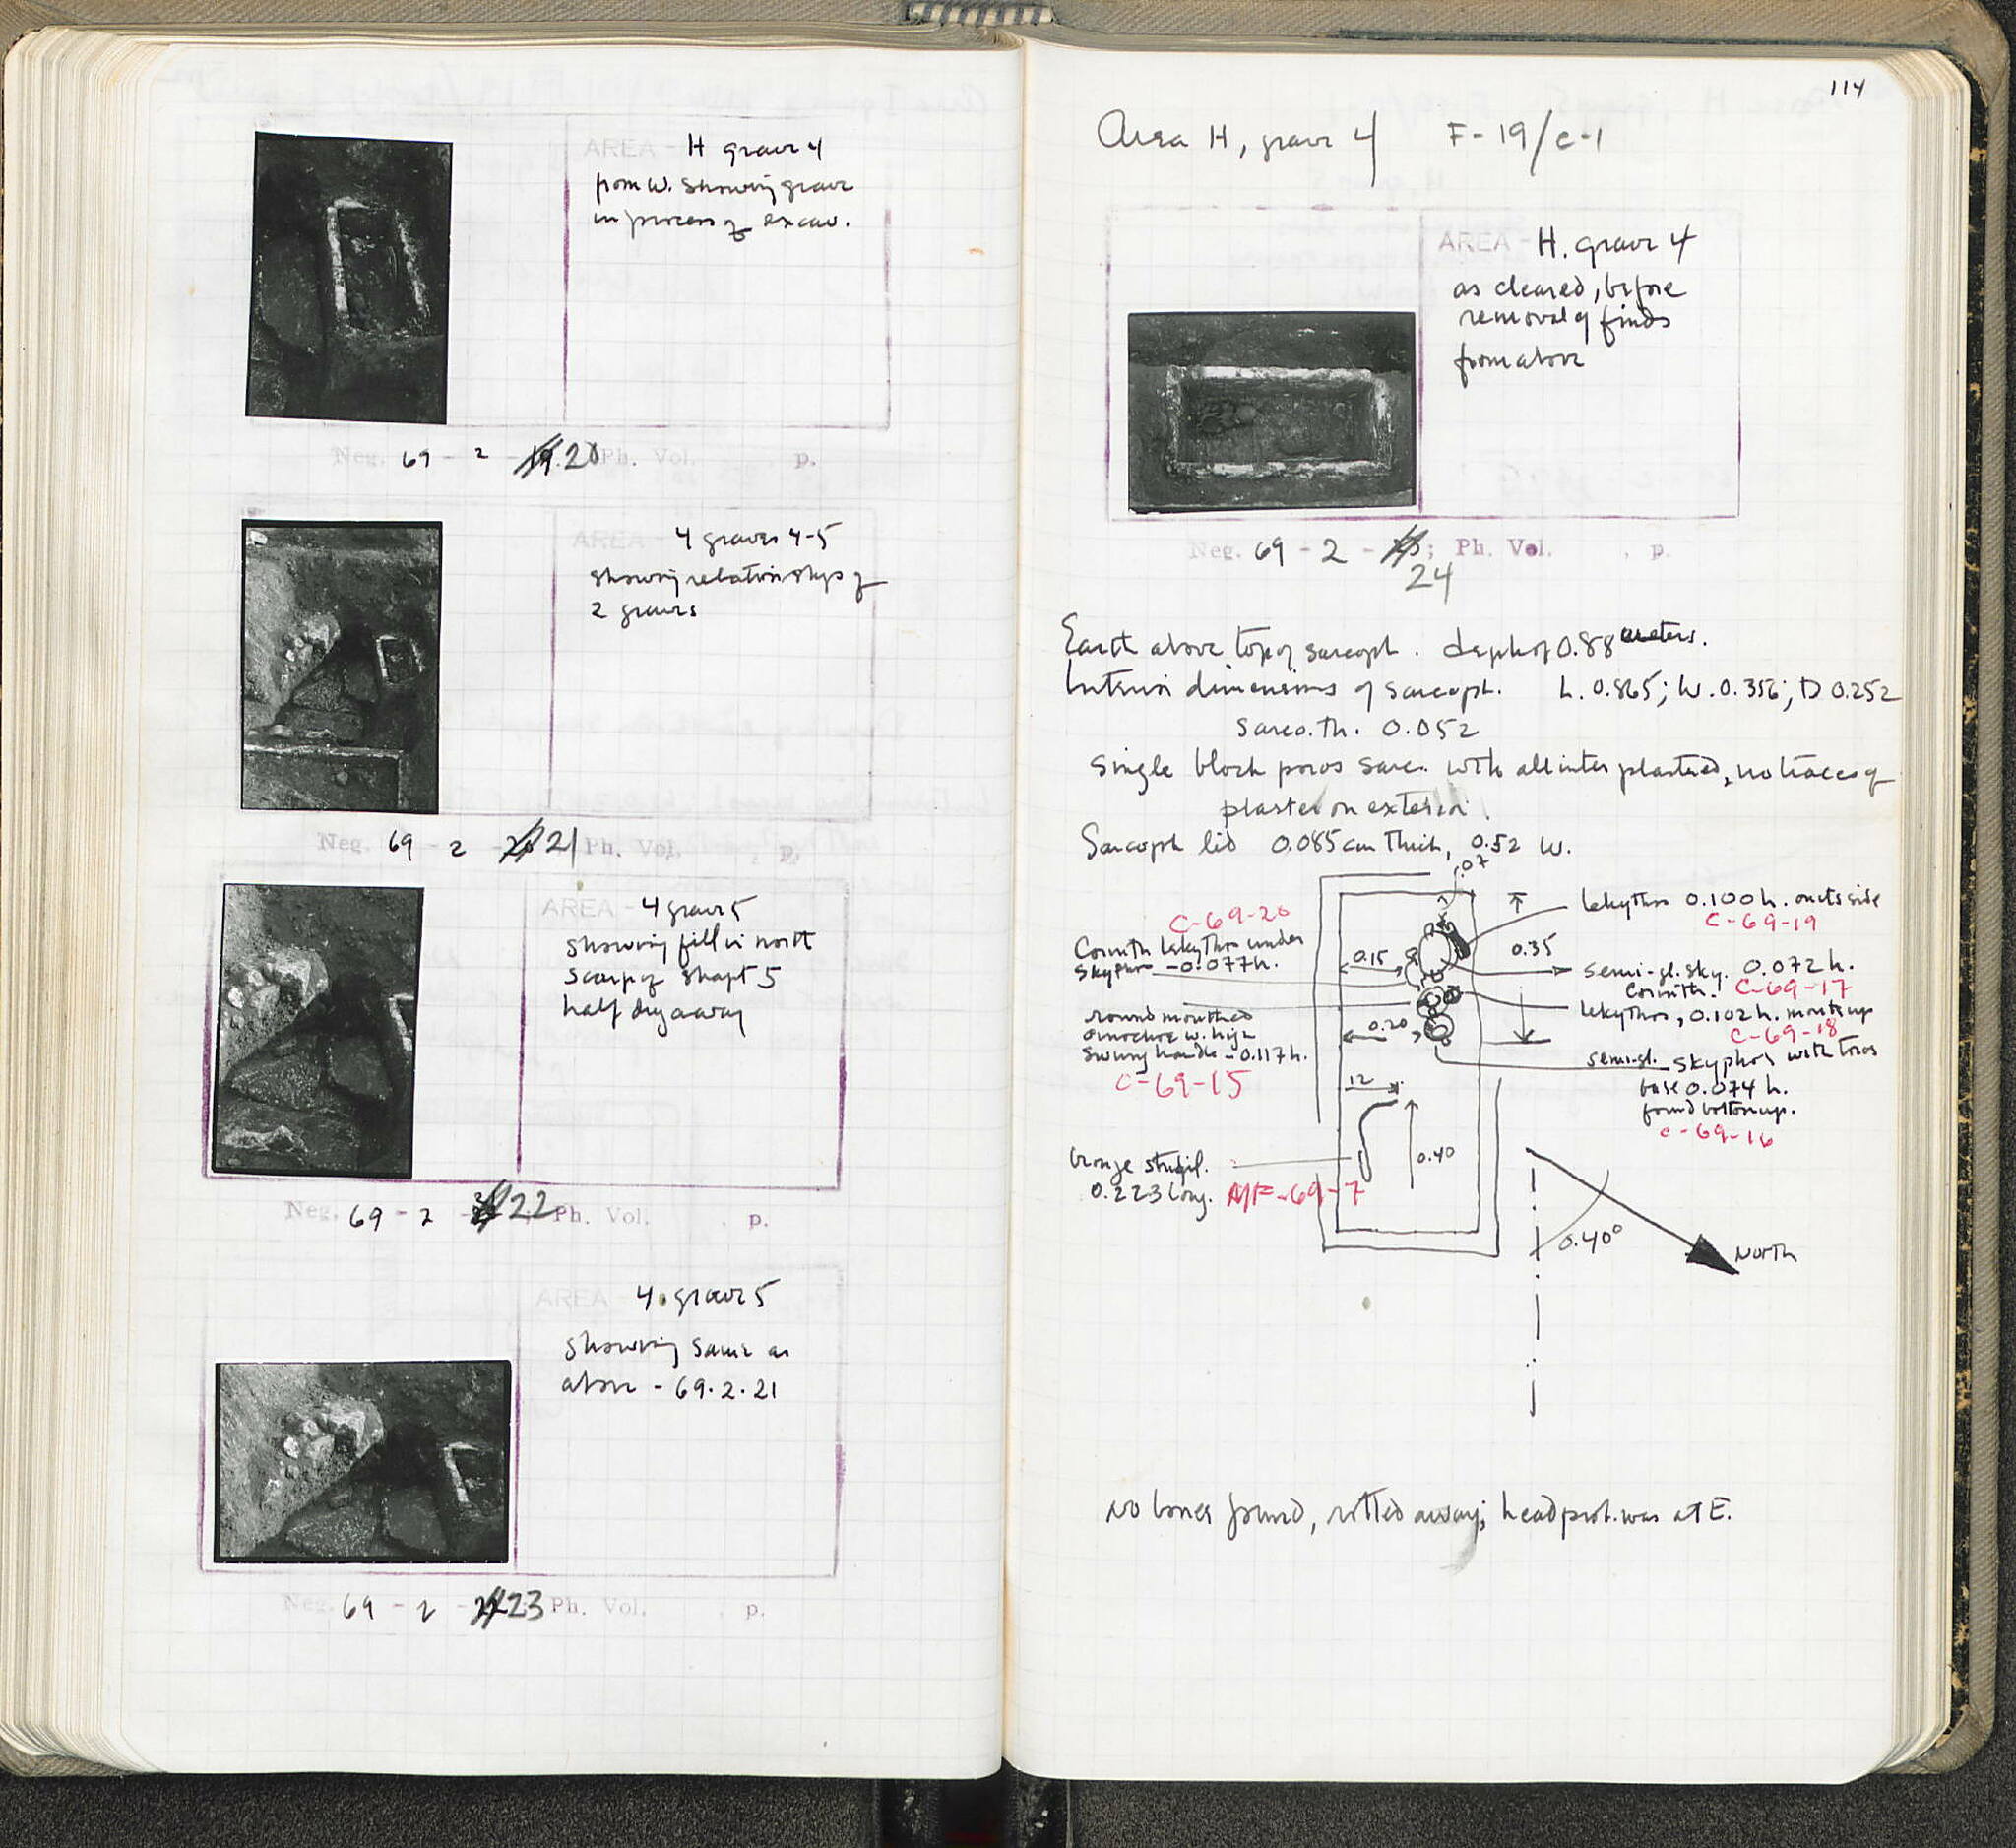 AREA - H grave 4
from W. showing grave
in process of excav.
Neg. 69 - 2 - 20 Ph. Vol. p.
AREA - 4 graves 4-5
showing relationships of
2 graves
Neg. 69 - 2 - 21 Ph. Vol. , p.
AREA - 4 grave 5
showing fill in north
scarp of shaft 5
half dug away
Neg. 69 - 2 - 22 Ph. Vol. , p.
AREA 4. grave 5
showing same as
above - 69.2.21
Neg. 69 - 2 - 23 Ph. Vol. , p.
114
Area H, grave 4 F-19/c-1
AREA - H. grave 4
as cleared, before
removal of finds
from above
Neg. 69 - 2 - ; Ph. Vol. , p.
24
Earth above top of sarcoph. depth of 0.88 meters.
Interior dimensions of sarcoph. L. 0.865; W. 0.356; D 0.252
Sarco. th. 0.052
Single block poros sarc. with all inter plastered, no traces of
plaster on exterior.
Sarcoph lid 0.085 cm thick, 0.52 W.
.07
C-69-20
Corinth lekythos under
skyphos - 0.077 h.
round mouthed
oinochoe w. high
swung handle - 0.117 h.
C-69-15
bronze strigil.
0.223 long. MF-69-7
0.15
0.35
0.20
12
0.40
lekythos 0.100 h. on its side
C-69-19
semi-gl. sky. 0.072 h.
Corinth. C-69-17
lekythos, 0.102 h. mouth up
C-69-18
semi-gl. skyphos with torus
base 0.074 h.
found bottom up.
C-69-16
0.40°
North
No bones found, rotted away; head prob. was at E.